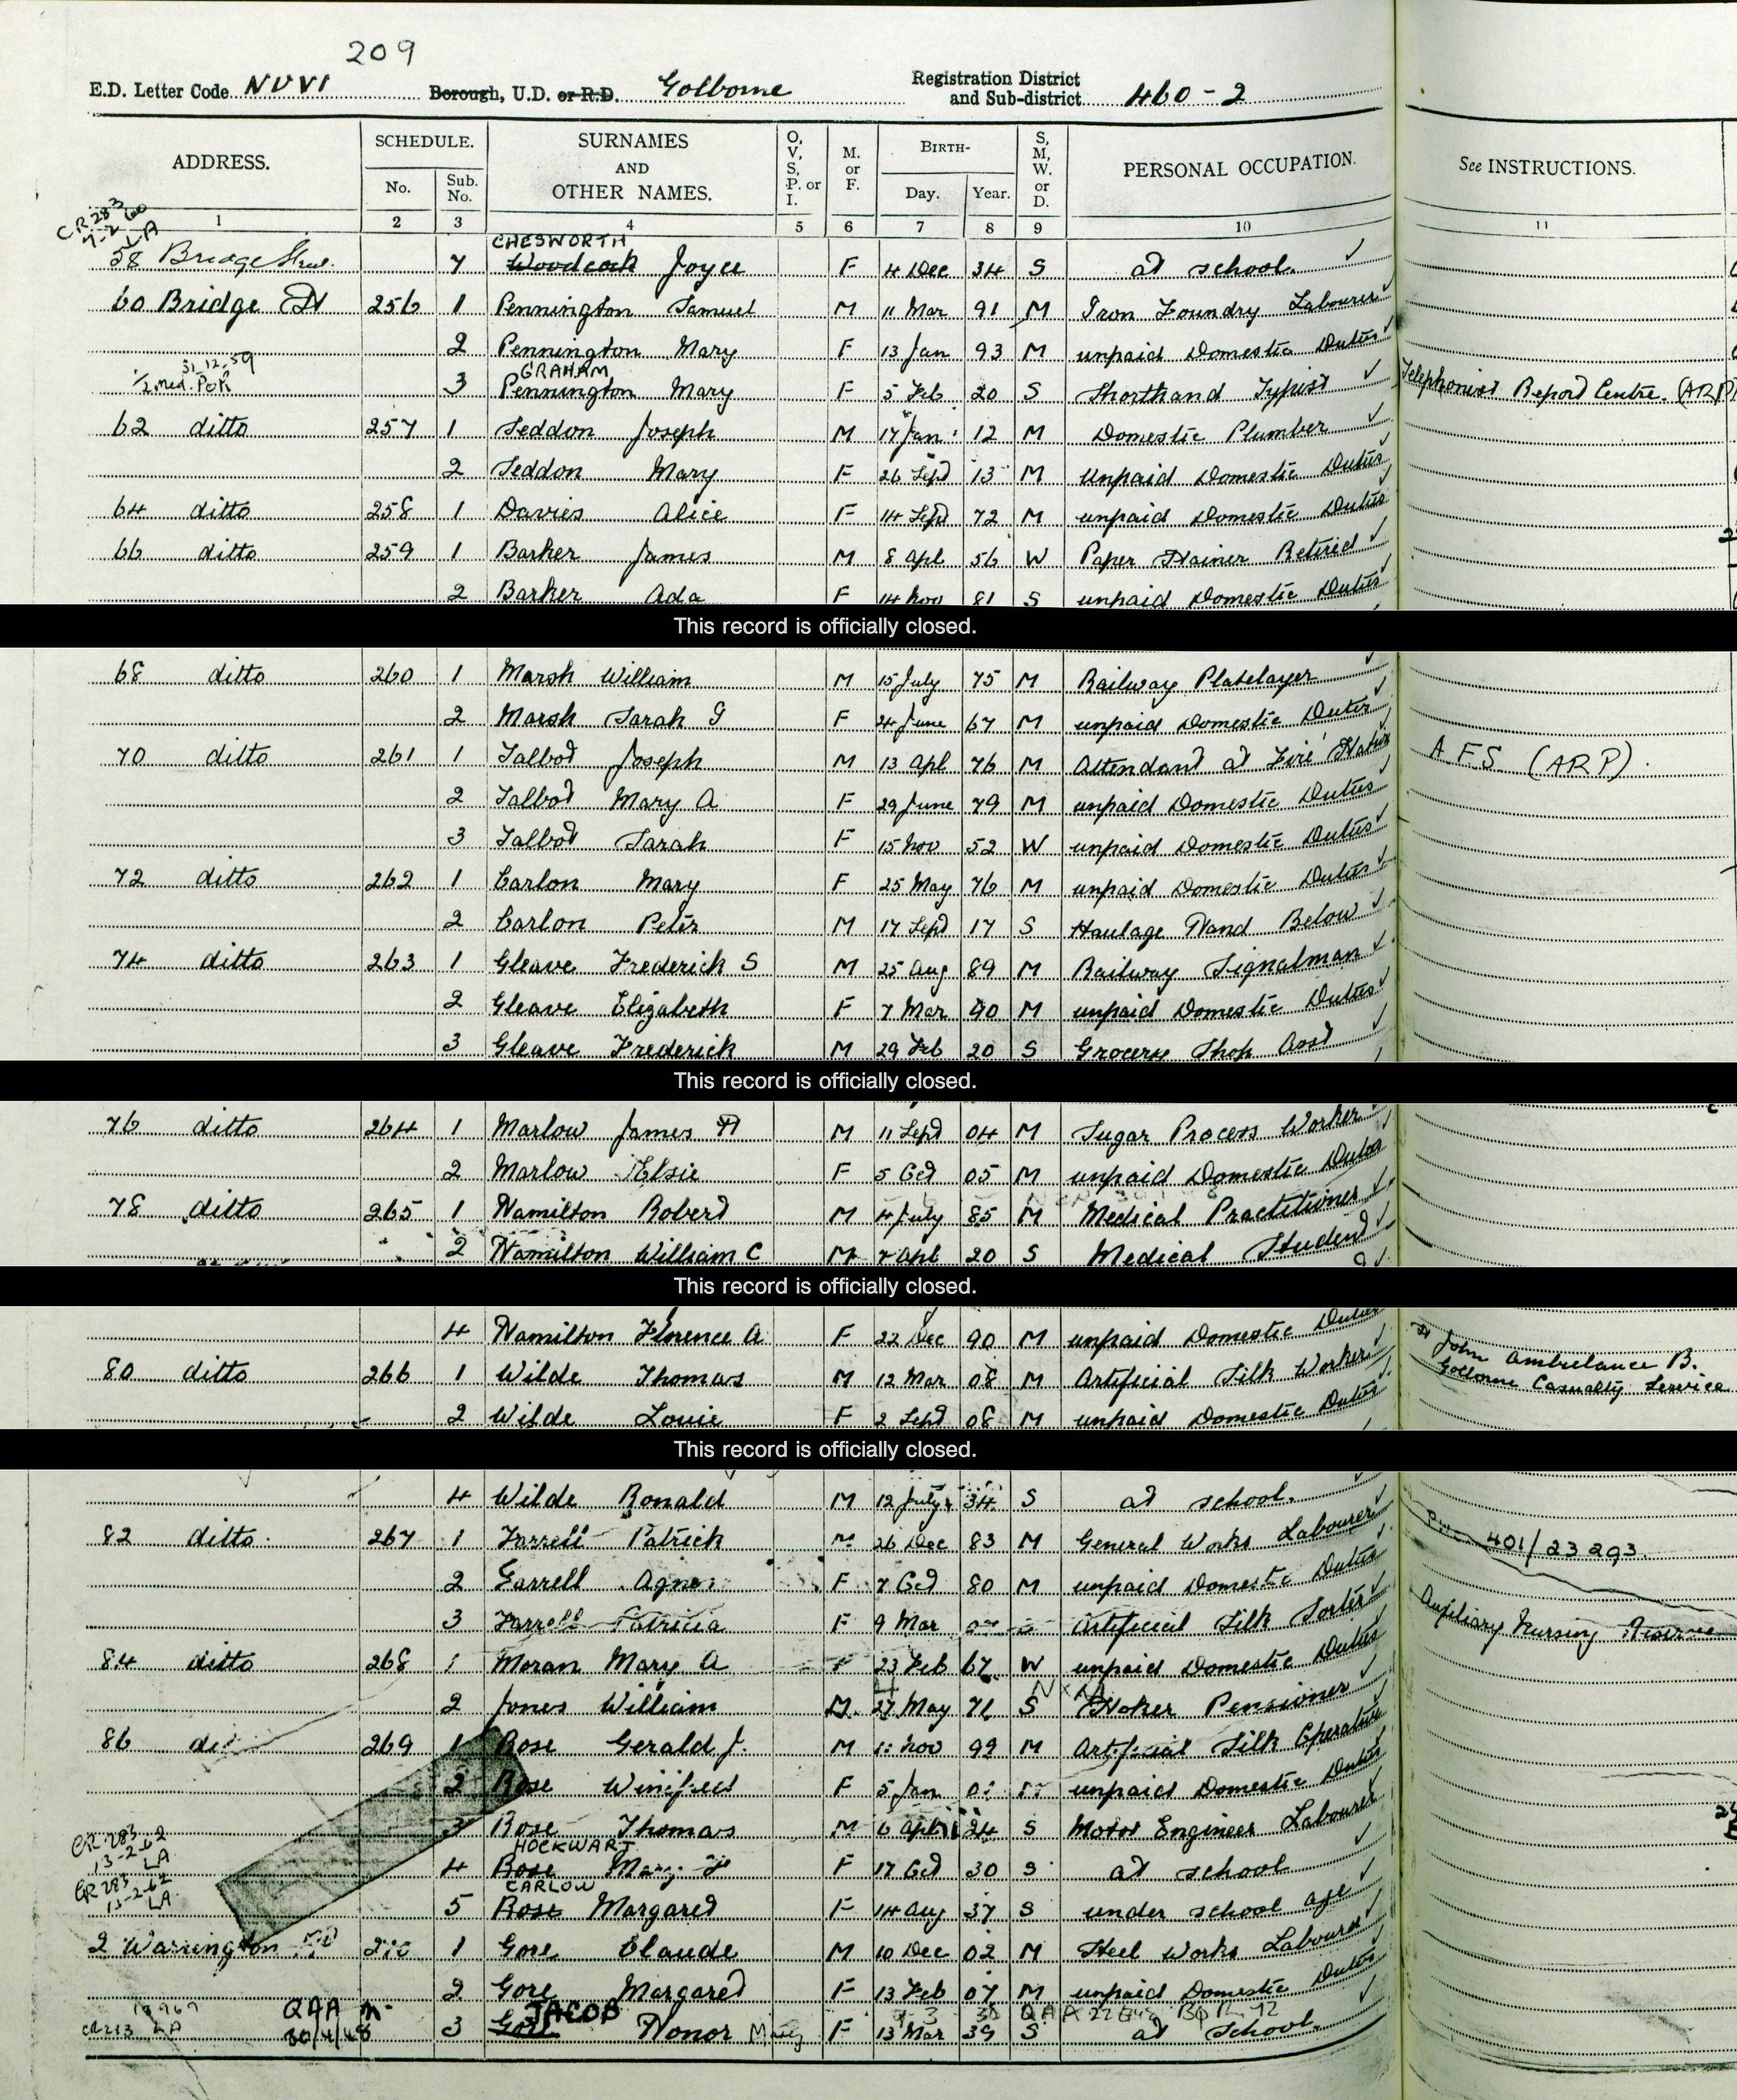 209
E.D. Letter Code NUVI Borough, U.D. or R.D. Golborne Registration District and Sub-district 460-2
ADDRESS. SCHEDULE. No. Sub. No. SURNAMES AND OTHER NAMES. O, V, S, P. or I. M. or F. BIRTH- Day. Year. S, M, W. or D. PERSONAL OCCUPATION. See INSTRUCTIONS.
1 2 3 4 5 6 7 8 9 10 11
CR 283
7-2-60
LA
CHESWORTH
58 Bridge Street 7 Woodcock Joyce F 4 Dec 34 S at school. ✓
60 Bridge St 256 1 Pennington Samuel M 11 Mar 91 M Iron Foundry Labourer ✓
2 Pennington Mary F 13 Jan 93 M unpaid Domestic Duties ✓
31.12.59
GRAHAM
3 Pennington Mary F 5 Feb 20 S Shorthand Typist ✓ Telephonist Report Centre. (ARP)
62 ditto 257 1 Seddon Joseph M 17 Jan 12 M Domestic Plumber ✓
2 Seddon Mary F 26 Sept 13 M Unpaid Domestic Duties ✓
64 ditto 258 1 Davies Alice F 14 Sept 72 M unpaid Domestic Duties
66 ditto 259 1 Barker James M 8 Apl 56 W Paper Stainer Retired ✓
2 Barker Ada F 14 Nov 81 S unpaid Domestic Duties ✓
This record is officially closed.
68 ditto 260 1 Marsh William M 15 July 75 M Railway Platelayer ✓
2 Marsh Sarah G F 24 June 67 M unpaid Domestic Duties ✓
70 ditto 261 1 Talbot Joseph M 13 Apl 76 M Attendant at Fire Station A F S (ARP).
2 Talbot Mary A F 29 June 79 M unpaid Domestic Duties ✓
3 Talbot Sarah F 15 Nov 52 W unpaid Domestic Duties ✓
72 ditto 262 1 Carlon Mary F 25 May 76 M unpaid Domestic Duties ✓
2 Carlon Peter M 17 Sept 17 S Haulage Hand Below ✓
74 ditto 263 1 Gleave Frederick S M 25 Aug 89 M Railway Signalman ✓
2 Gleave Elizabeth F 7 Mar 90 M unpaid Domestic Duties ✓
3 Gleave Frederick M 29 Feb 20 S Grocery Shop Asst ✓
This record is officially closed.
76 ditto 264 1 Marlow James H M 11 Sept 04 M Sugar Process Worker ✓
2 Marlow Elsie F 5 Oct 05 M unpaid Domestic Duties
78 ditto 265 1 Hamilton Robert M 4 July 85 M Medical Practitioner ✓
2 Hamilton William C M 7 Apl 20 S Medical Student ✓
This record is officially closed.
4 Hamilton Florence A F 22 Dec 90 M unpaid Domestic Duties
80 ditto 266 1 Wilde Thomas M 12 Mar 08 M Artificial Silk Worker ✓ St John Ambulance B.
Golborne Casualty Service
2 Wilde Louie F 2 Sept 08 M unpaid Domestic Duties
This record is officially closed.
4 Wilde Ronald M 12 July 34 S at school. ✓
82 ditto 267 1 Farrell Patrick M 26 Dec 83 M General Works Labourer ✓ 401/23293.
2 Farrell Agnes F 7 Oct 80 M unpaid Domestic Duties
3 Farrell Patricia F 9 Mar Artificial Silk Sorter ✓ Auxiliary Nursing Reserve
84 ditto 268 1 Moran Mary A F 23 Feb 67 W unpaid Domestic Duties
2 Jones William M 27 May 71 S Stoker Pensioner ✓
86 269 1 Rose Gerald J. M Nov 99 M Artificial Silk Operative
2 Rose Winifred F 5 Jan unpaid Domestic Duties
3 Rose Thomas M 6 Apl 24 S Motor Engineer Labourer
CR 283
13-2-62
LA
HOCKWART
4 Rose Mary F 17 Oct 30 S at school ✓
CR 283
13-2-62
LA
CARLOW
5 Rose Margaret F 14 Aug 37 S under school age ✓
2 Warrington Rd 270 1 Gore Claude M 10 Dec 02 M Steel Works Labourer ✓
2 Gore Margaret F 13 Feb 07 M unpaid Domestic Duties
CR 283 LA QAA
30/4/48
JACOB
3 Gore Honor Mary F 13 Mar 39 S at school.